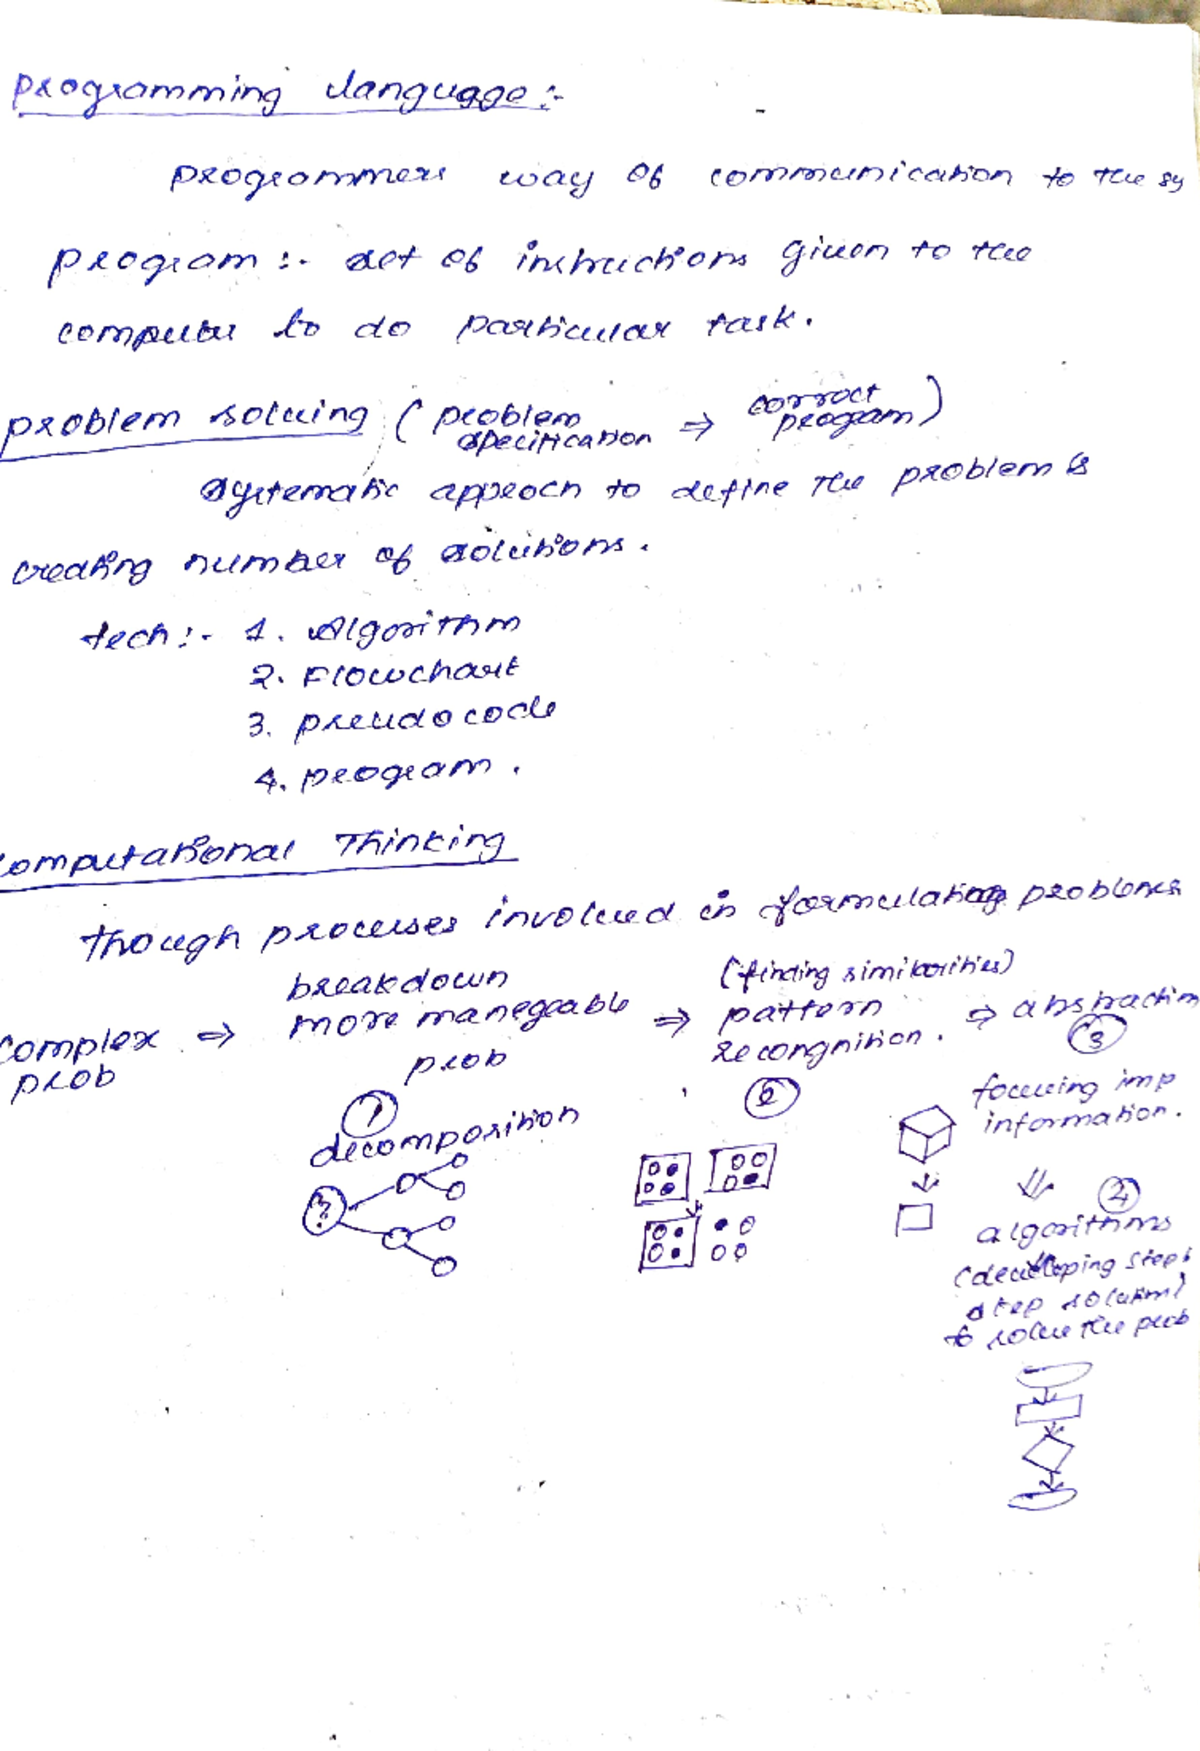 programming language :-
programmers way of communication to the sy
program :- set of instructions given to the
computer to do particular task.
problem solving ( problem specification ⇒ correct program )
systematic approch to define the problem &
creating number of solutions.
tech :- 1. Algorithm
2. Flowchart
3. pseudocode
4. program.
Computational Thinking
though processes involved in formulating problems
complex prob ⇒ breakdown more manegeable prob ⇒ (finding similarities) pattern recongnition. ⇒ abstraction
1 decomposition
?
2
3
focusing imp
information.
4
algorithms
(developing step &
step solution)
to solve the prob